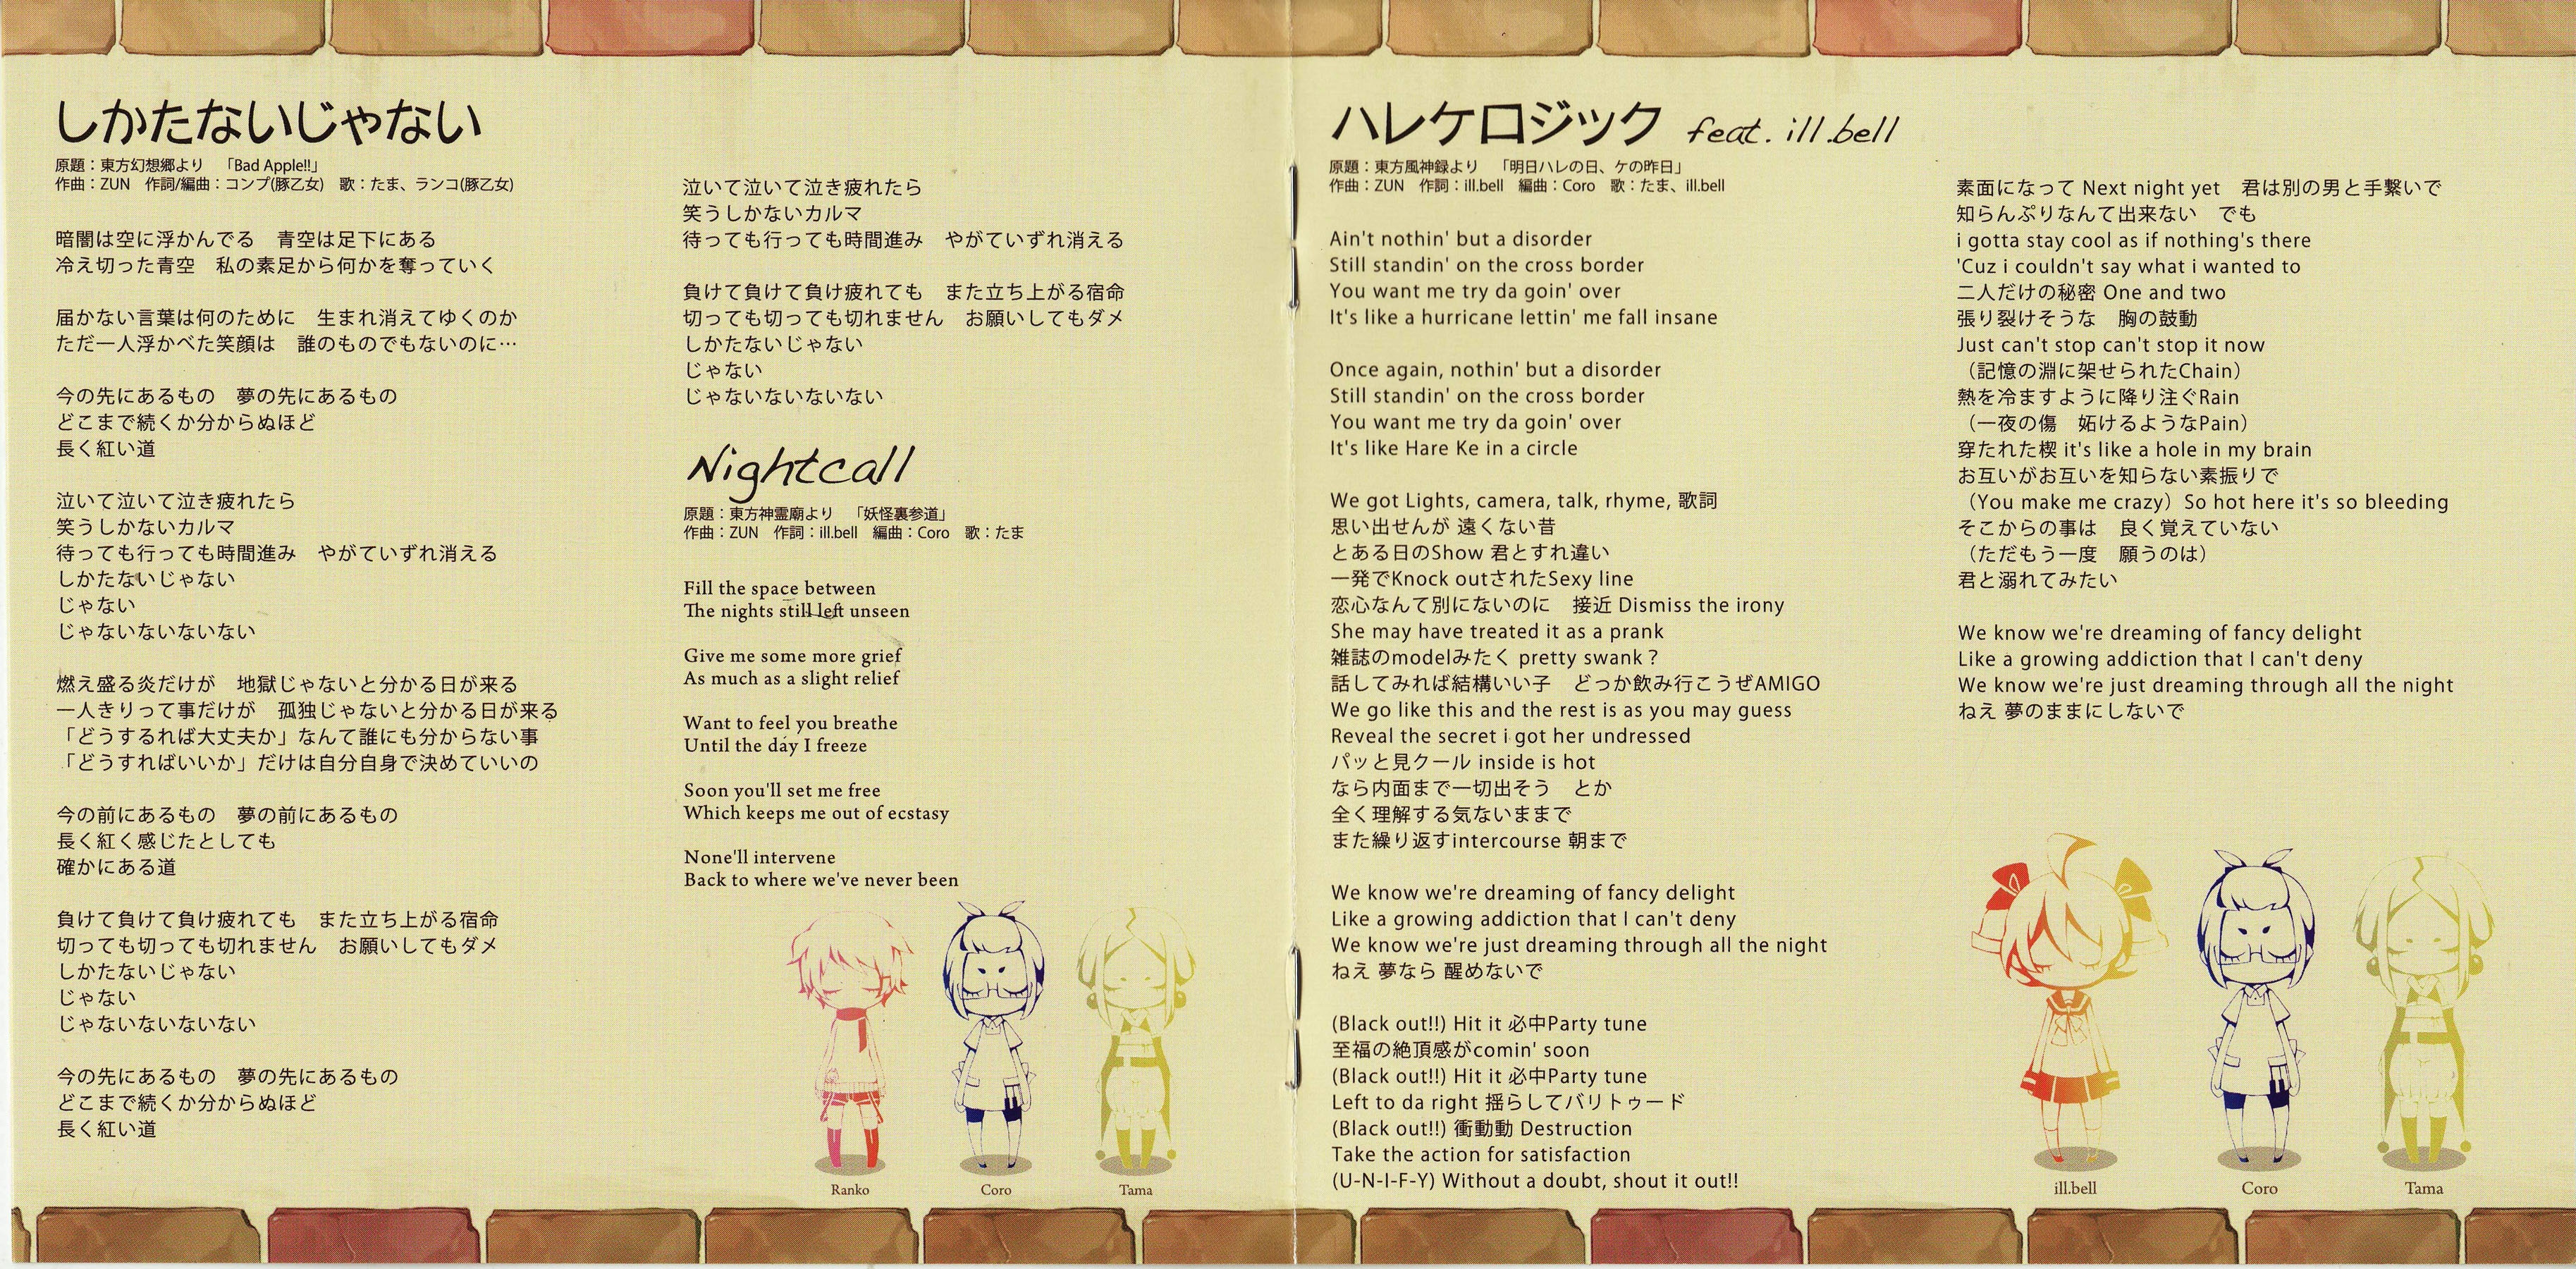 しかたないじゃない
原題：東方幻想郷より　「Bad Apple!!」
作曲：ZUN　作詞/編曲：コンプ(豚乙女)　歌：たま、ランコ(豚乙女)
暗闇は空に浮かんでる　青空は足下にある
冷え切った青空　私の素足から何かを奪っていく
届かない言葉は何のために　生まれ消えてゆくのか
ただ一人浮かべた笑顔は　誰のものでもないのに…
今の先にあるもの　夢の先にあるもの
どこまで続くか分からぬほど
長く紅い道
泣いて泣いて泣き疲れたら
笑うしかないカルマ
待っても行っても時間進み　やがていずれ消える
しかたないじゃない
じゃない
じゃないないないない
燃え盛る炎だけが　地獄じゃないと分かる日が来る
一人きりって事だけが　孤独じゃないと分かる日が来る
「どうするれば大丈夫か」なんて誰にも分からない事
「どうすればいいか」だけは自分自身で決めていいの
今の前にあるもの　夢の前にあるもの
長く紅く感じたとしても
確かにある道
負けて負けて負け疲れても　また立ち上がる宿命
切っても切っても切れません　お願いしてもダメ
しかたないじゃない
じゃない
じゃないないないない
今の先にあるもの　夢の先にあるもの
どこまで続くか分からぬほど
長く紅い道
泣いて泣いて泣き疲れたら
笑うしかないカルマ
待っても行っても時間進み　やがていずれ消える
負けて負けて負け疲れても　また立ち上がる宿命
切っても切っても切れません　お願いしてもダメ
しかたないじゃない
じゃない
じゃないないないない
Nightcall
原題：東方神霊廟より　「妖怪裏参道」
作曲：ZUN　作詞：ill.bell　編曲：Coro　歌：たま
Fill the space between
The nights still left unseen
Give me some more grief
As much as a slight relief
Want to feel you breathe
Until the day I freeze
Soon you'll set me free
Which keeps me out of ecstasy
None'll intervene
Back to where we've never been
Ranko
Coro
Tama
ハレケロジック feat. ill.bell
原題：東方風神録より　「明日ハレの日、ケの昨日」
作曲：ZUN　作詞：ill.bell　編曲：Coro　歌：たま、ill.bell
Ain't nothin' but a disorder
Still standin' on the cross border
You want me try da goin' over
It's like a hurricane lettin' me fall insane
Once again, nothin' but a disorder
Still standin' on the cross border
You want me try da goin' over
It's like Hare Ke in a circle
We got Lights, camera, talk, rhyme, 歌詞
思い出せんが 遠くない昔
とある日のShow 君とすれ違い
一発でKnock outされたSexy line
恋心なんて別にないのに　接近 Dismiss the irony
She may have treated it as a prank
雑誌のmodelみたく pretty swank？
話してみれば結構いい子　どっか飲み行こうぜAMIGO
We go like this and the rest is as you may guess
Reveal the secret i got her undressed
パッと見クール inside is hot
なら内面まで一切出そう　とか
全く理解する気ないままで
また繰り返すintercourse 朝まで
We know we're dreaming of fancy delight
Like a growing addiction that I can't deny
We know we're just dreaming through all the night
ねえ 夢なら 醒めないで
(Black out!!) Hit it 必中Party tune
至福の絶頂感がcomin' soon
(Black out!!) Hit it 必中Party tune
Left to da right 揺らしてバリトゥード
(Black out!!) 衝動動 Destruction
Take the action for satisfaction
(U-N-I-F-Y) Without a doubt, shout it out!!
素面になって Next night yet　君は別の男と手繋いで
知らんぷりなんて出来ない　でも
i gotta stay cool as if nothing's there
'Cuz i couldn't say what i wanted to
二人だけの秘密 One and two
張り裂けそうな　胸の鼓動
Just can't stop can't stop it now
（記憶の淵に架せられたChain）
熱を冷ますように降り注ぐRain
（一夜の傷　妬けるようなPain）
穿たれた楔 it's like a hole in my brain
お互いがお互いを知らない素振りで
（You make me crazy）So hot here it's so bleeding
そこからの事は　良く覚えていない
（ただもう一度　願うのは）
君と溺れてみたい
We know we're dreaming of fancy delight
Like a growing addiction that I can't deny
We know we're just dreaming through all the night
ねえ 夢のままにしないで
ill.bell
Coro
Tama